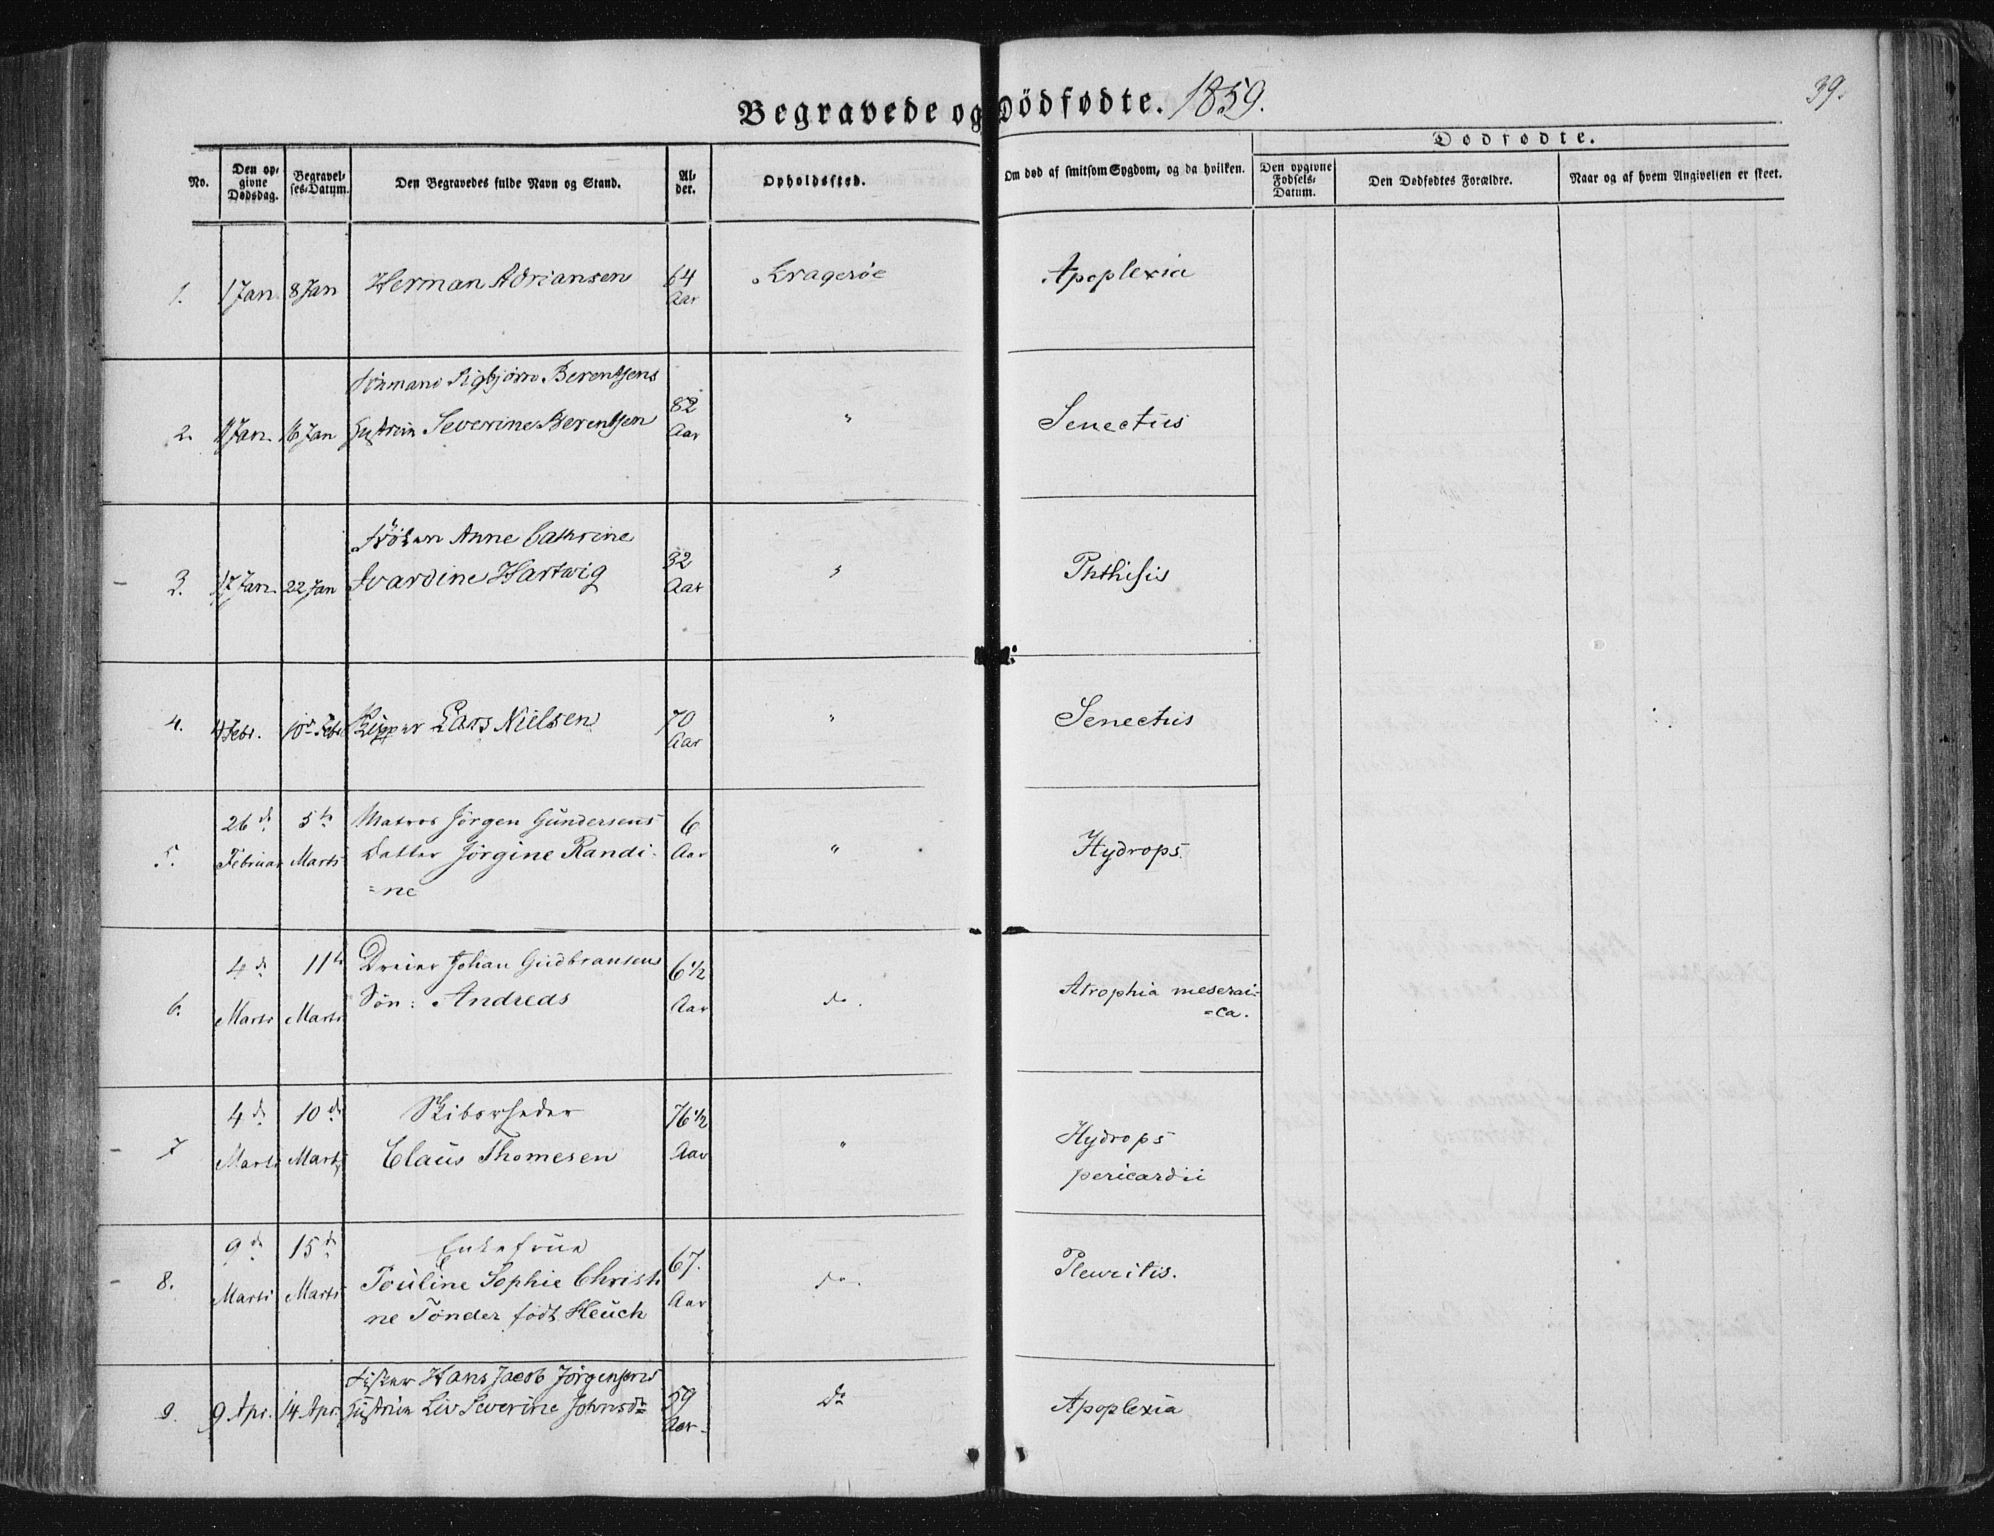 39.
Begravede og Dödfødte. 1859.
Dødfødte.
No.
Den opgivne Dødsdag.
Begravelses-Datum.
Den Begravedes fulde Navn og Stand.
Alder.
Opholdssted.
Om død af smitsom Sygdom, og da hvilken.
Den opgivne Fødsels-Datum.
Den Dødfødtes Forældre.
Naar og af hvem Angivelsen er skeet.
1. 1 Jan. 8 Jan Herman Adriansen 64 Aar Kragerøe Apoplexia
Sigbjørn Berentsens
2. 11 Jan. 16 Jan Hustrue Severine Berentsen 82 Aar " Senectus
Frøken Anne Cathrine
3. 17 Jan. 22 Jan Ivardine Hartwig 32 Aar " Phthisis
4. 4 Febr. 10de Febr Skipper Lars Nielsen 70 Aar " Senectus
26 d. 5 te Matros Jörgen Gündersens 6
5. Februar Marts Datter Jörgine Randi- Aar " Hydrops.
=ne
4 d. 11 te Dreier Johan Gudbransens 6 1/2
6. Marts Marts Sön: Andreas Aar do. Atrophia meserai=
=ca.
4 d. 10 d. Skibsrheder 76 1/2
7 Marts Marts Claus Thomesen Aar " Hydrops
pericardii
9 d. 15 d. Enkefrue 67.
8. Marts Marts Pouline Sophie Christi Aar do. Pleuritis.
ne Tönder födt Heuch
Fisker Hans Jacob Jörgensens
9. 9 Apr. 14 Apr. Hustrue Liv Severine Johnsd= 59 Aar. Do Apoplexia